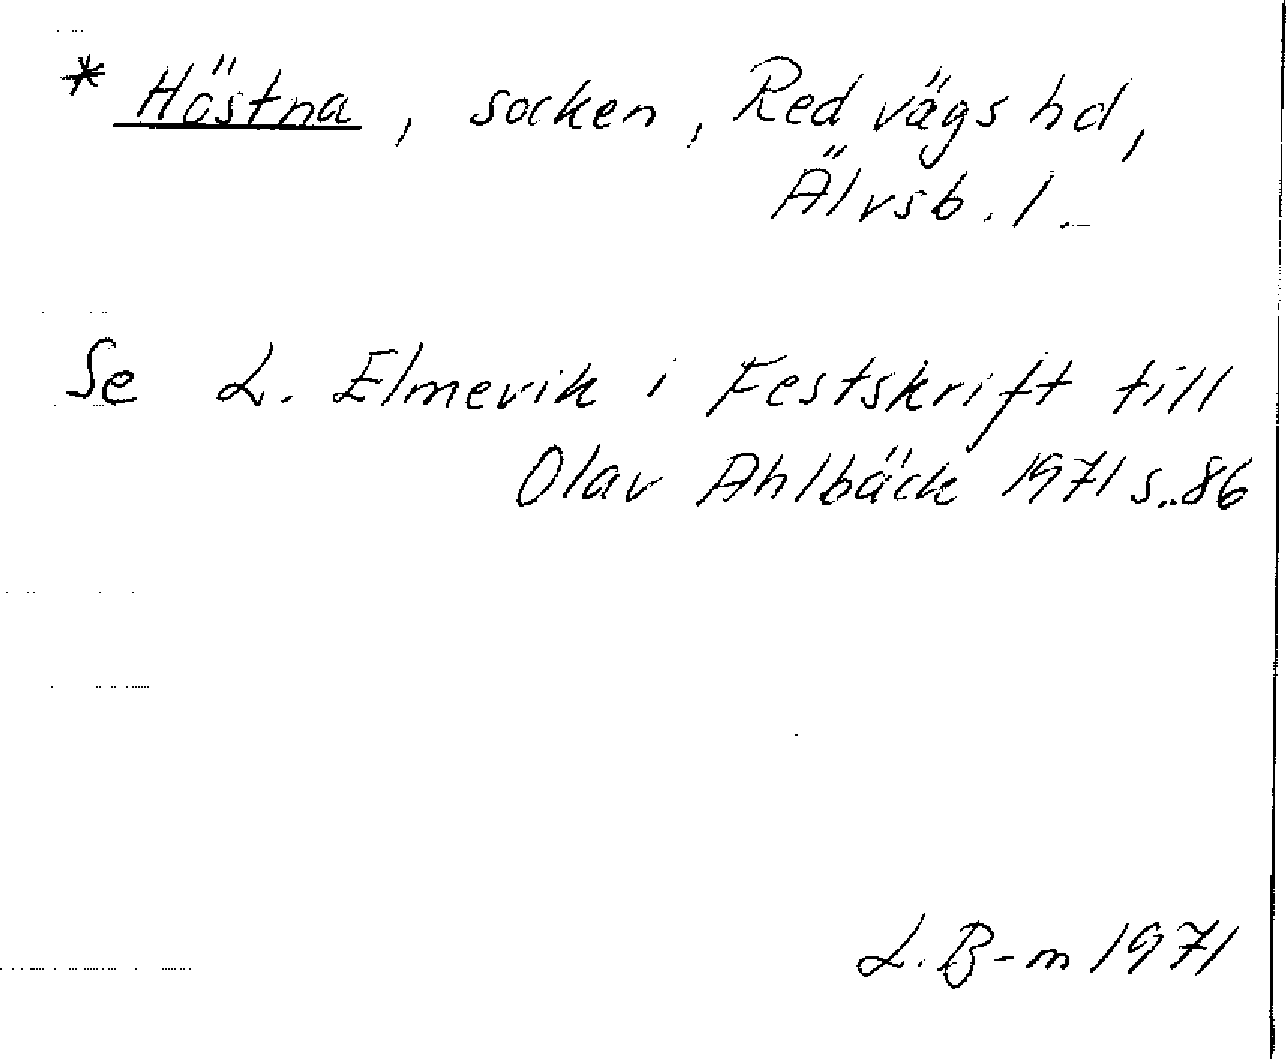 * Höstna, socken, Redvägs hd,
Älvsb. l.
Se L. Elmevik i Festskrift till
Olav Ahlbäck 1971 s. 86
L. B-m 1971